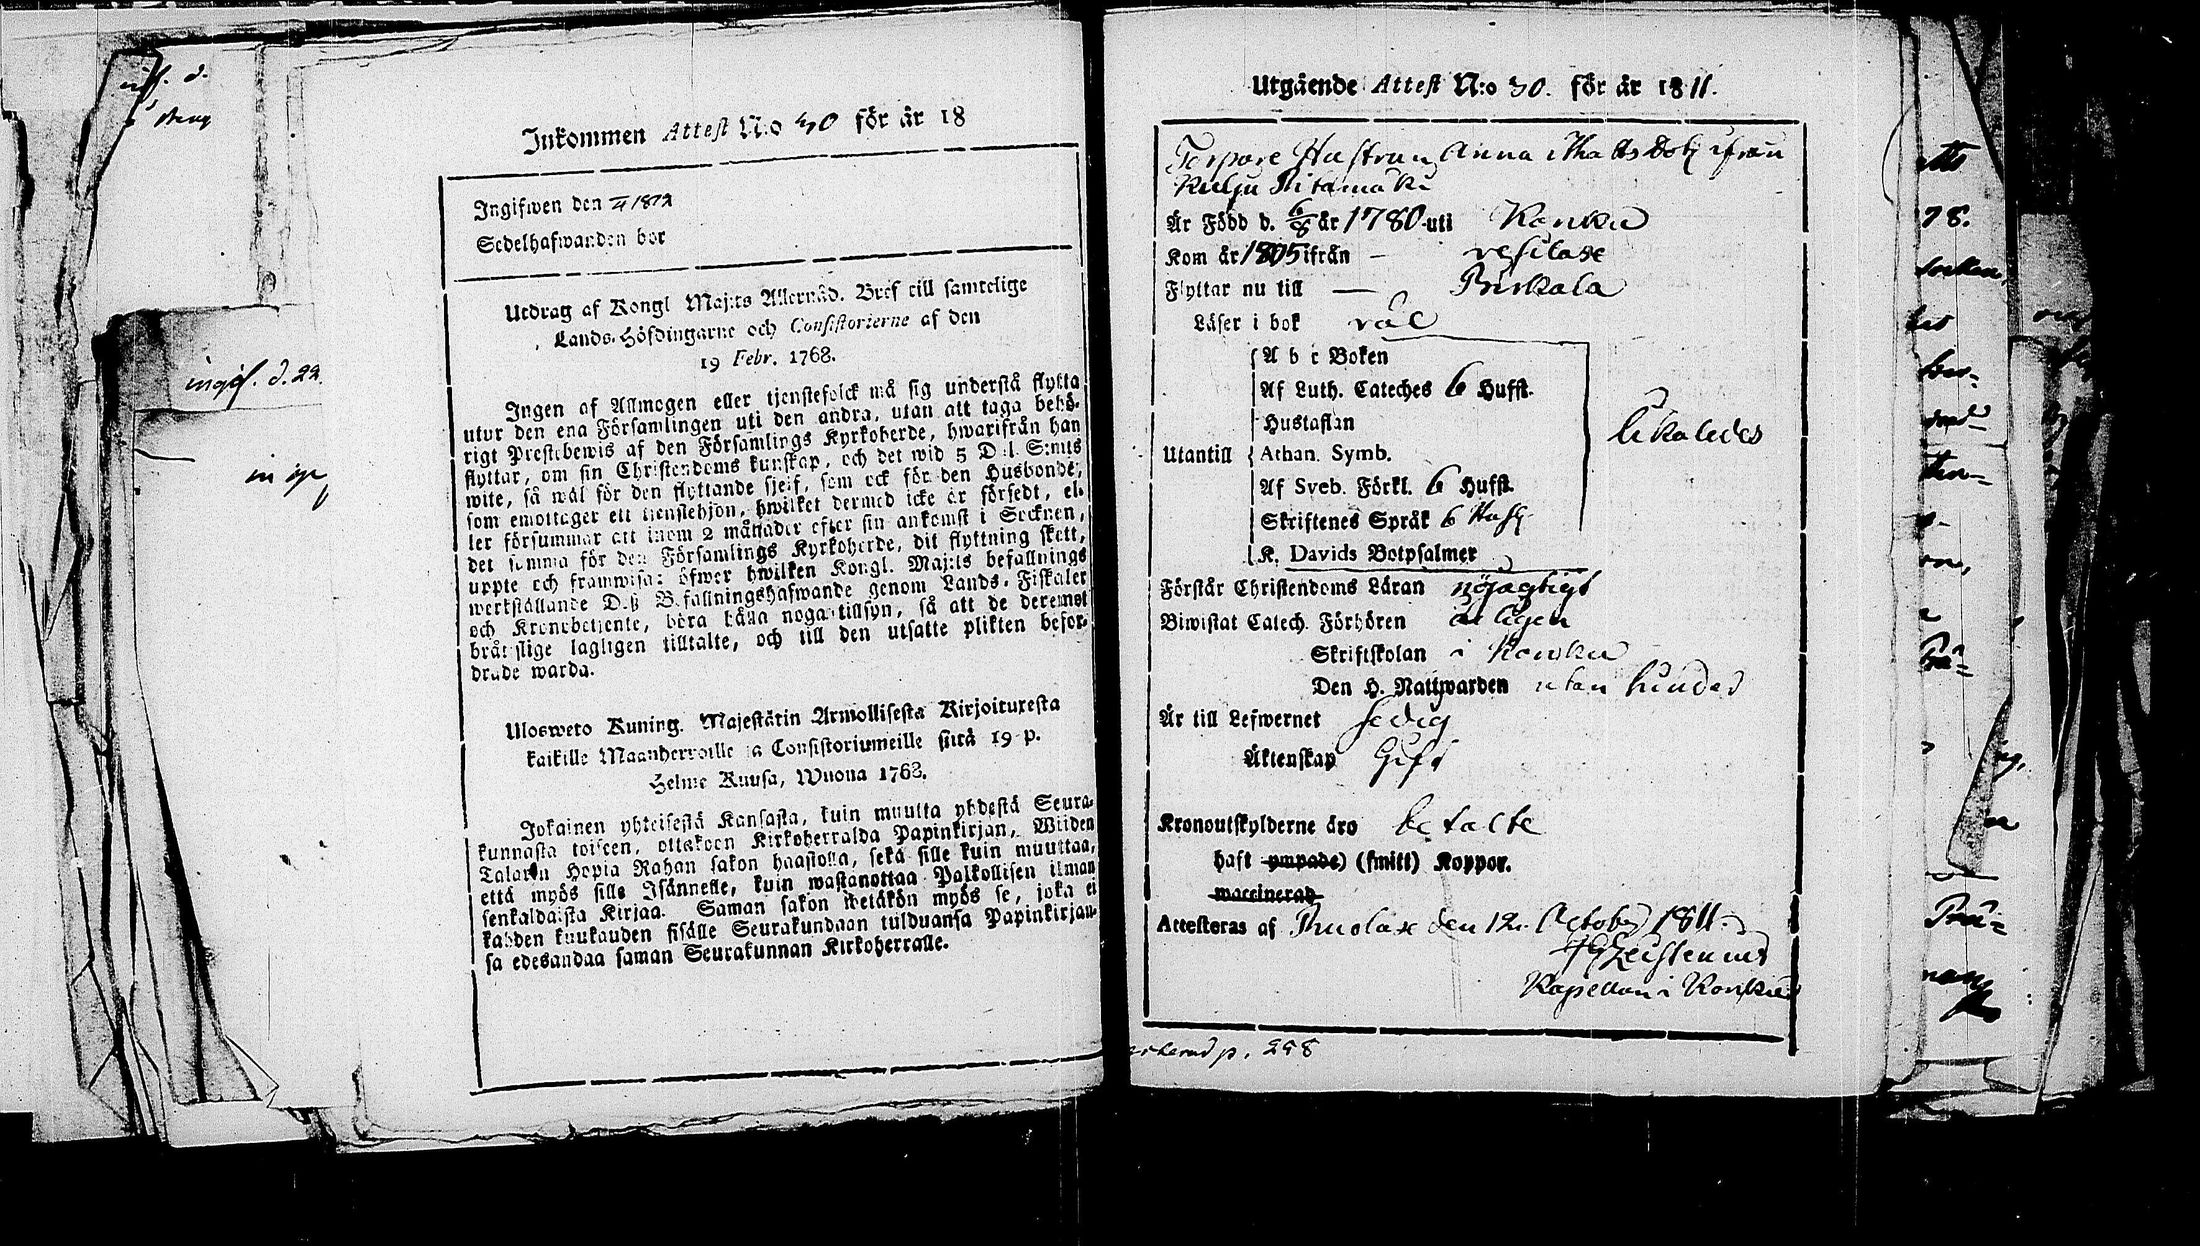 Inkommen Attest N:o 30 för år 18
Ingifwen den 1812
Sedelhafwanden bor
Utdrag af Kongl Maj:ts Allernåd. Bref till samtelige
Lands-Höfdingarne och Consistorierne af den
19 Febr. 1768.
Ingen af Allmogen eller tjenstefolck må sig understå flytta
utur den ena Församlingen uti den andra, utan att taga behö-
rigt Prestebewis af den Församlings Kyrkoherde, hwarifrån han
flyttar, om sin Christendoms kunskap, och det wid 5 Dal. S:mts
wite, så wäl för den flyttande sjelf, som ock för den Husbonde,
som emottager ett tjenstehjon, hwilket dermed icke är försedt, el-
ler försummar att inom 2 månader efter sin ankomst i Socknen,
det samma för den Församlings Kyrkoherde, dit flyttning skett,
uppte och framwisa: öfwer hwilken Kongl. Maj:ts befallnings
werkställande Deß Befallningshafwande genom Lands-Fiskaler
och Kronobetjente, böra hålla noga tillsyn, så att de deremot
bråtslige lagligen tilltalte, och till den utsatte plikten befor-
drade warda.
Ulosweto Kuning. Majestätin Armollisesta Kirjoituxesta
kaikille Maanherroille ja Consistoriumeille siitä 19 p.
Helme Kuusa, Wuona 1768.
Jokainen yhteisestä Kansasta, kuin muutta yhdestä Seura-
kunnasta toiseen, ottakoon Kirkoherralda Papinkirjan, Wiiden
Talarin Hopia Rahan sakon haastolla, sekä sille kuin muuttaa,
että myös sille Isännelle, kuin wastanottaa Palkollisen ilman
senkaldaista Kirjaa. Saman sakon wetäkön myös se, joka ei
kahden kuukauden sisälle Seurakundaan tulduansa Papinkirjan-
sa edesandaa saman Seurakunnan Kirkoherralle.
Utgående Attest N:o 30. för år 1811.
Torpare Hustrun Anna Matts Dott ifrån
Kulju
Är Född d. 6/8 år 1780 uti Kanku
Kom år 1805 ifrån — vesilax
Flyttar nu till — Birkala
Läser i bok väl
A b c Boken
Af Luth. Cateches 6 Hufst.
Hustaflan
Utantill Athan. Symb.
likaledes
Af Sveb. Förkl. 6 Hufst.
Skriftenes Språk 6 Hufst
K. Davids Botpsalmer
Förstår Christendoms Läran nöjagtigt
Biwistat Catech. Förhören årligen
Skriftskolan i Kanku
Den H. Nattwarden utan hinder
Är till Lefwernet Sedig
Äktenskap Gift
Kronoutskylderne äro betalte
haft ympade) (smitt) Koppor.
waccinerad
Attesteras af den 12. October 1811.
Kapellan i Kanku
p. 298
ingif. d. 22.